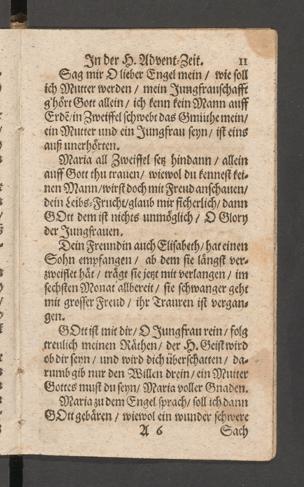 In der H. Advent-Zeit. 11
Sag mir O lieber Engel mein / wie soll
ich Mutter werden / mein Jungfrauschafft
g'hört Gott allein / ich kenn kein Mann auff
Erdē/in Zweiffel schwebt das Gmüthe mein/
ein Mutter und ein Jungfrau seyn / ist eins
auß unerhörten.
Maria all Zweiffel setz hindann / allein
auff Gott thu trauen / wiewol du kennest kei-
nen Mann/wirst doch mit Freud anschauen/
dein Leibs-Frucht/glaub mir sicherlich/dann
GOtt dem ist nichts unmöglich / O Glory
der Jungfrauen.
Dein Freundin auch Elisabeth/hat einen
Sohn empfangen / ab dem sie längst ver-
zweiflet hät / trägt sie jezt mit verlangen / im
sechsten Monat allbereit / sie schwanger geht
mit grosser Freud / ihr Trauren ist vergan-
gen.
GOtt ist mit dir/O Jungfrau rein / folg
treulich meinen Räthen / der H. Geist wird
ob dir seyn / und wird dich überschatten / da-
rumb gib nur den Willen drein / ein Mutter
Gottes must du seyn/Maria voller Gnaden.
Maria zu dem Engel sprach/soll ich dann
GOtt gebären / wiewol ein wunder schwere
A 6 Sach